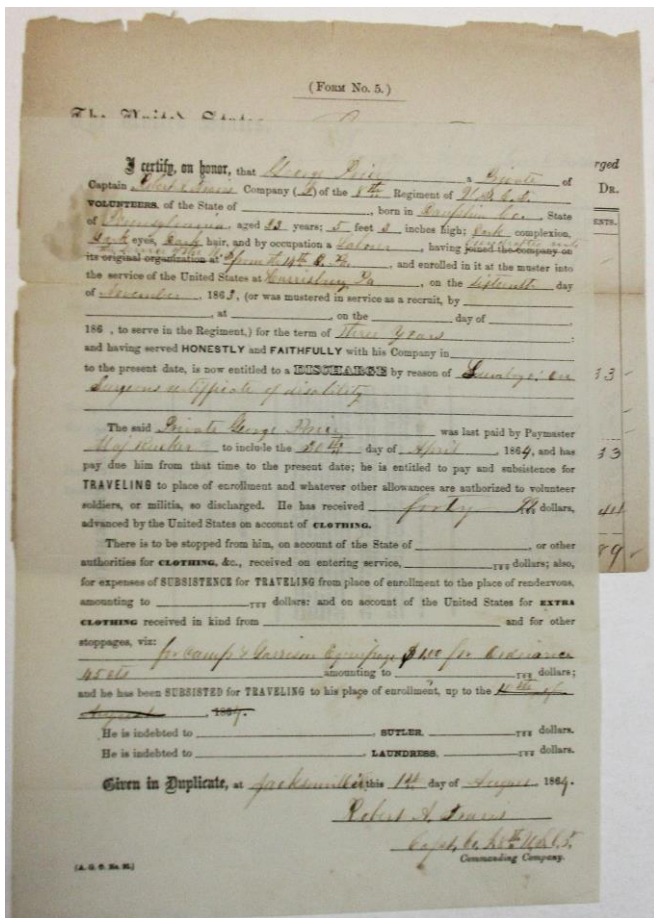 (FORM NO. 5.)
The United States
I certify, on honor, that George a Private of
Captain Company of the 8th Regiment of U.S.C.T.
VOLUNTEERS, of the State of , born in Dauphin Co. State
of Pennsylvania, aged 33 years; 5 feet 3 inches high; Dark complexion,
Dark eyes, Dark hair, and by occupation a Laborer, having joined the company on
its original organization at , and enrolled in it at the muster into
the service of the United States at Harrisburg Pa, on the day
of November, 1863, (or was mustered in service as a recruit, by
, at , on the day of ,
186 , to serve in the Regiment,) for the term of Three Years
and having served HONESTLY and FAITHFULLY with his Company in
to the present date, is now entitled to a DISCHARGE by reason of Lumbago; on
Surgeons certificate of disability
The said Private George was last paid by Paymaster
Maj to include the 30th day of April, 1864, and has
pay due him from that time to the present date; he is entitled to pay and subsistence for
TRAVELING to place of enrollment and whatever other allowances are authorized to volunteer
soldiers, or militia, so discharged. He has received forty dollars,
advanced by the United States on account of CLOTHING.
There is to be stopped from him, on account of the State of , or other
authorities for CLOTHING, &c., received on entering service, dollars; also,
for expenses of SUBSISTENCE for TRAVELING from place of enrollment to the place of rendezvous,
amounting to dollars: and on account of the United States for EXTRA
CLOTHING received in kind from and for other
stoppages, viz: for Camp & Garrison Equipage $1.00 for Ordnance
45 cts amounting to dollars;
and he has been SUBSISTED for TRAVELING to his place of enrollment, up to the
August, 1864.
He is indebted to , SUTLER, dollars.
He is indebted to , LAUNDRESS, dollars.
Given in Duplicate, at Jacksonville this 1st day of August, 1864.
Robert A.
Capt. Co. 8th U.S.C.T.
Commanding Company.
(A. G. O. No. 
DR.